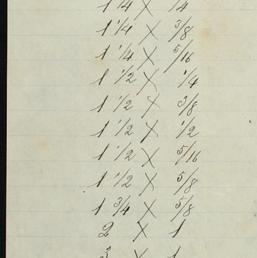 1 1/4 X 1/4
1 1/4 X 3/8
1 1/4 X 5/16
1 1/2 X 1/4
1 1/2 X 3/8
1 1/2 X 1/2
1 1/2 X 5/16
1 1/2 X 5/8
1 3/4 X 5/8
2 X 1
3 X 1